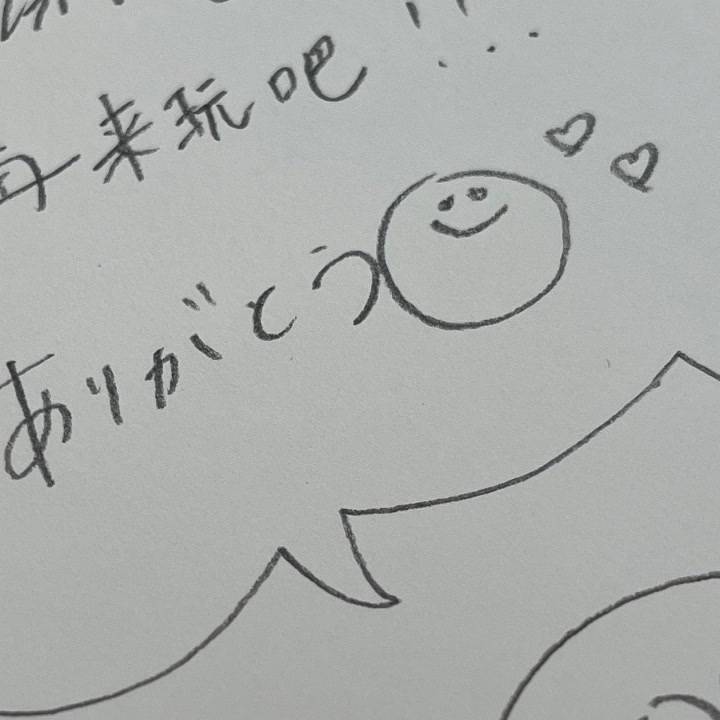 再来玩吧!!
ありがとう